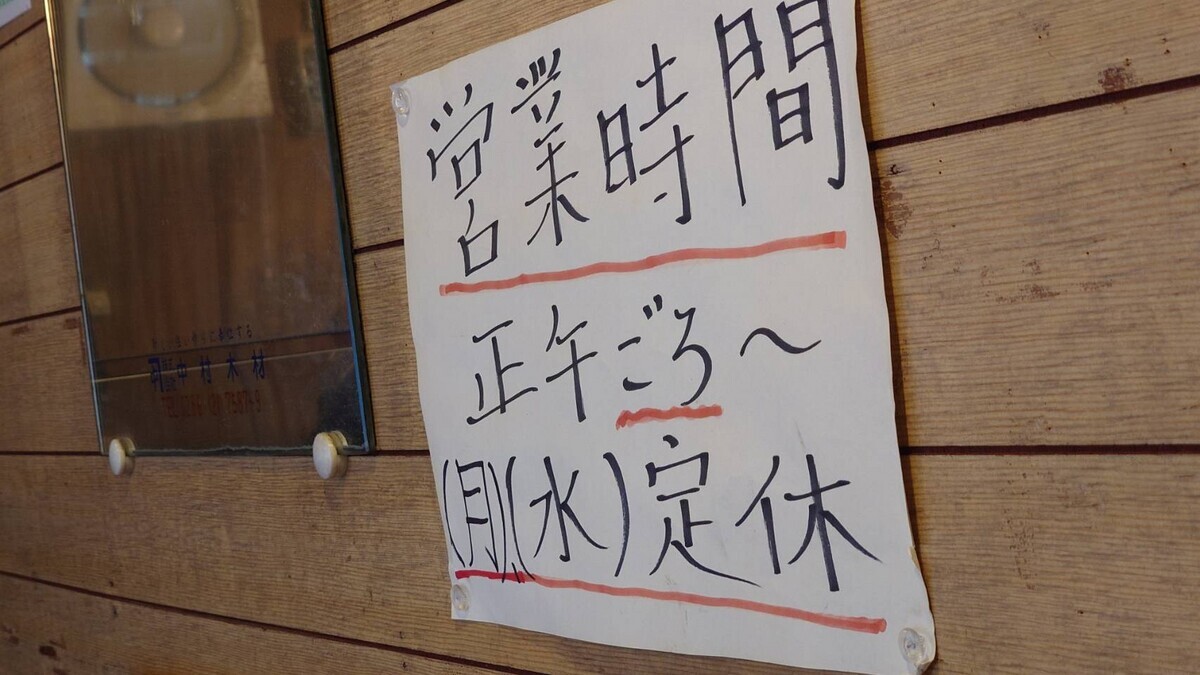 営業時間
正午ごろ〜
(月)(水)定休
中村木材